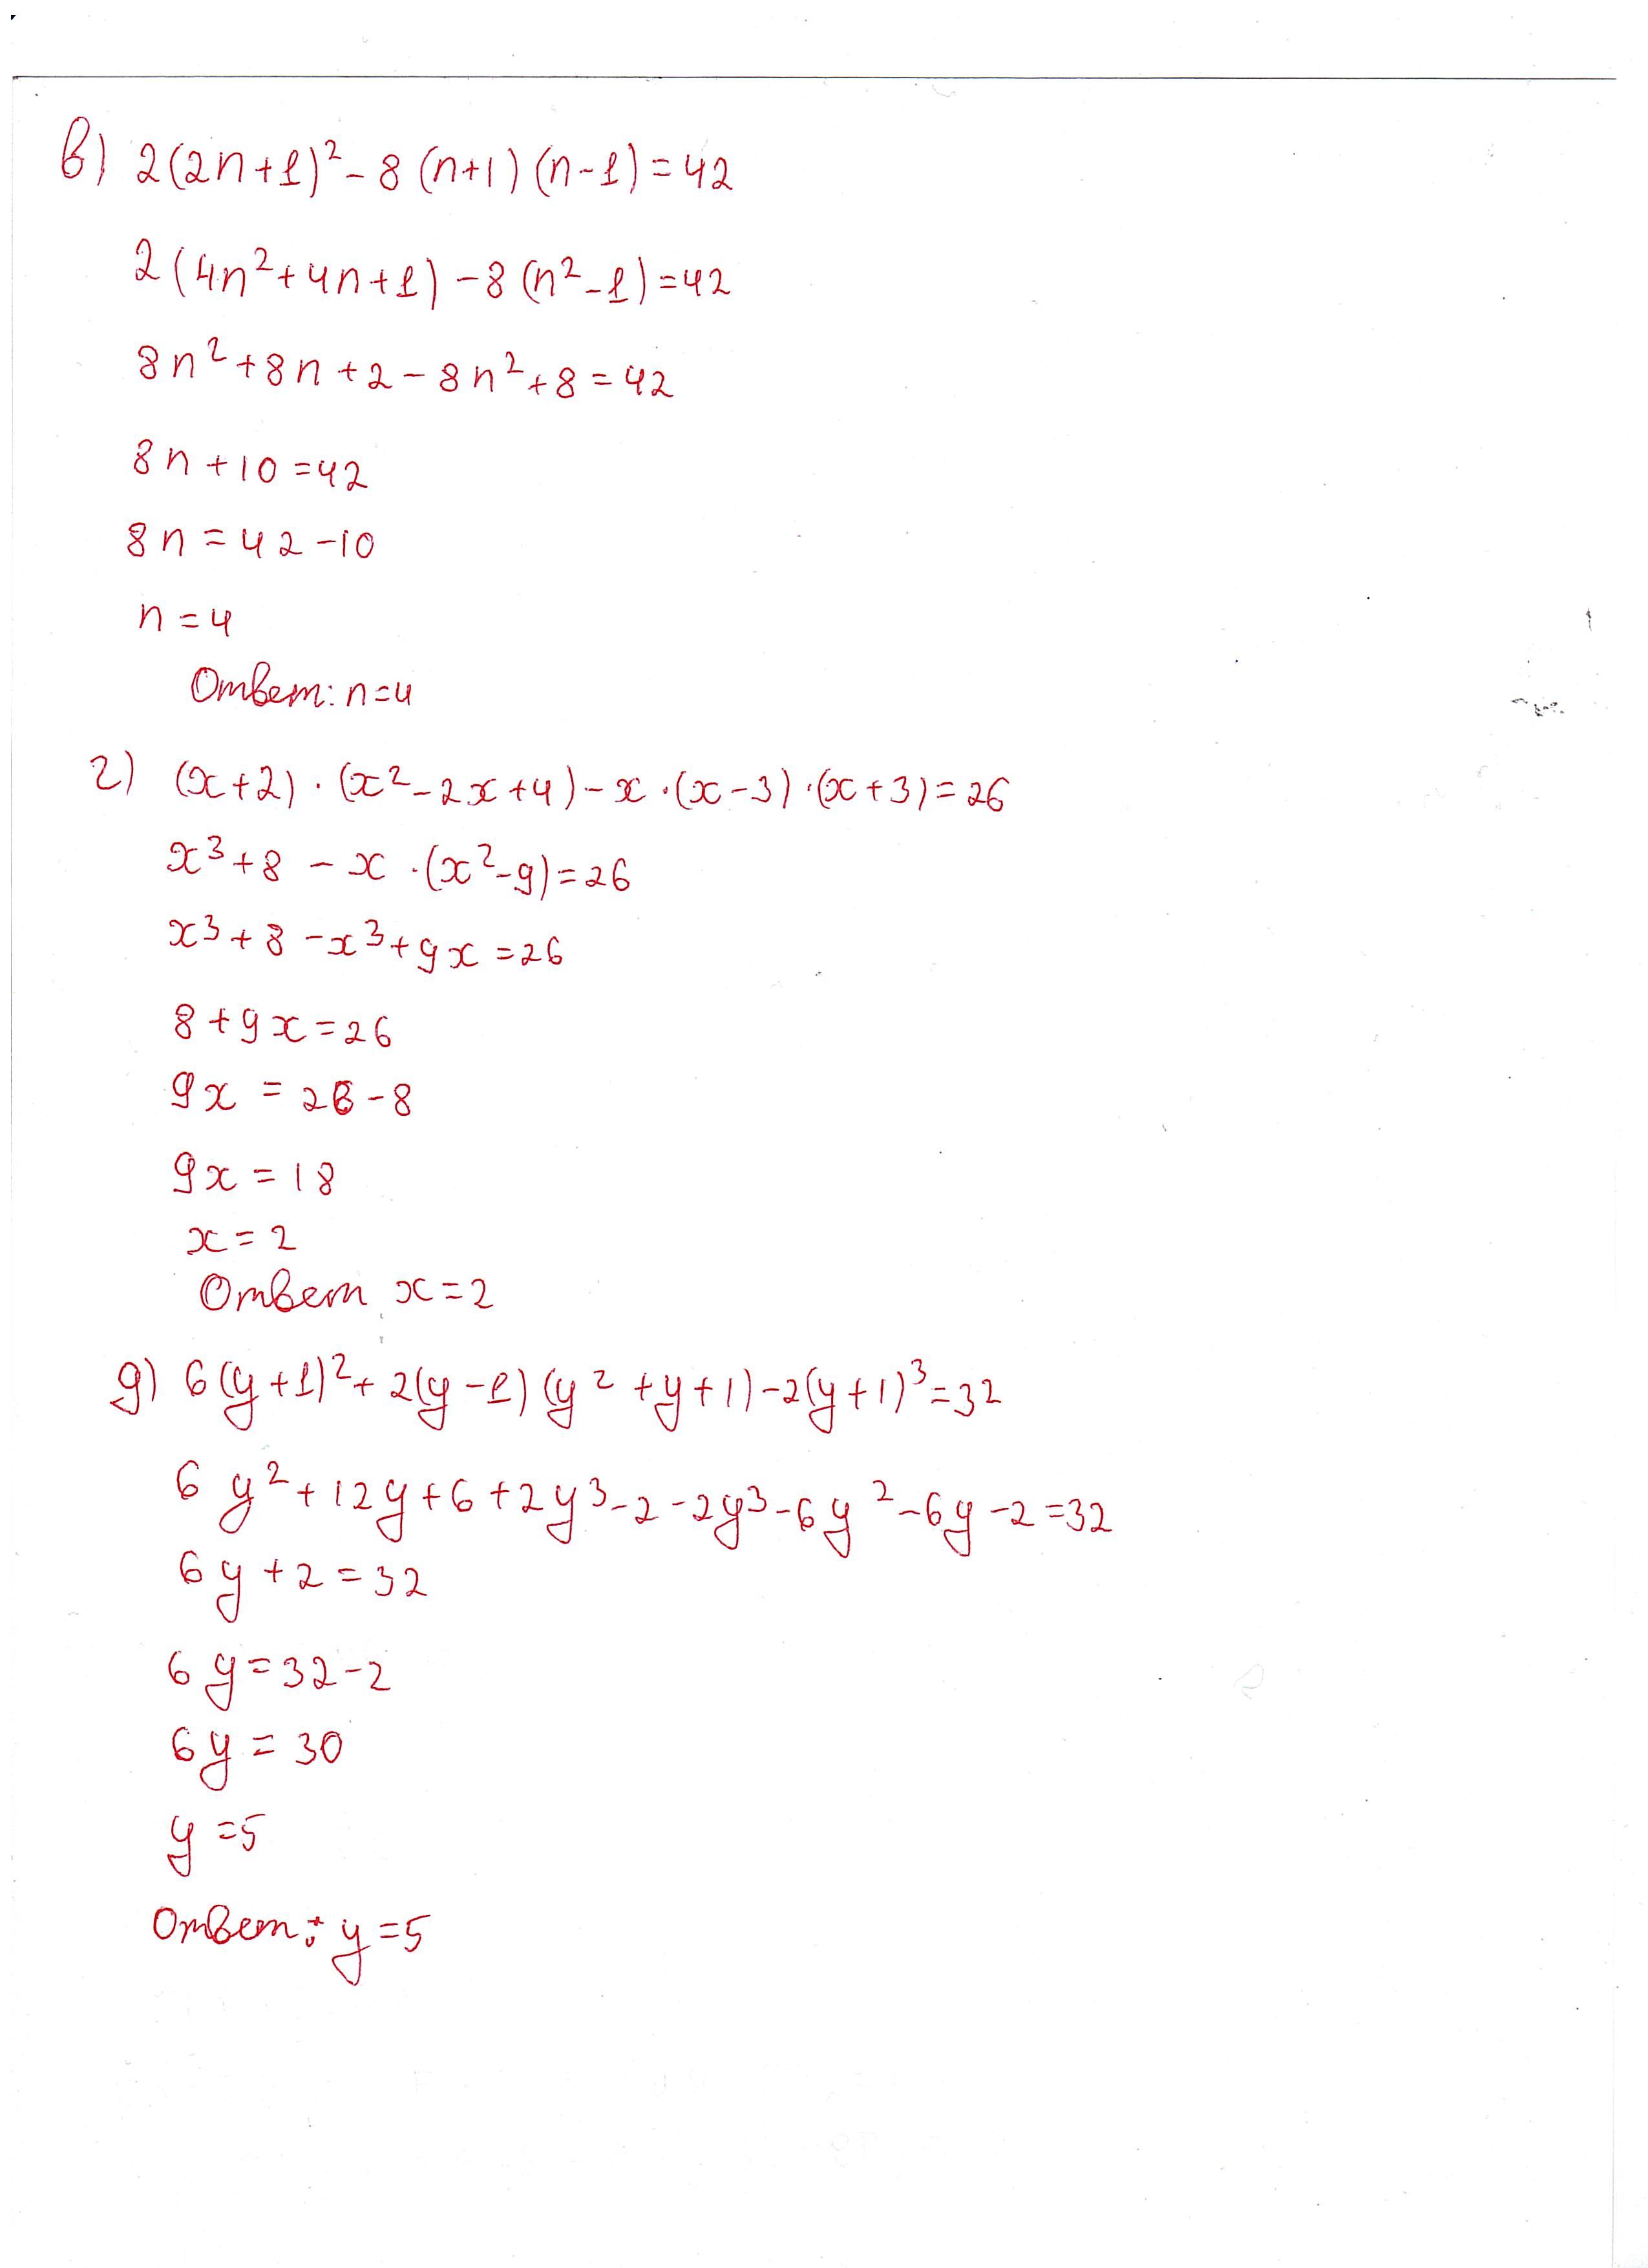 в) 2(2n+1)²-8(n+1)(n-1)=42
2(4n²+4n+1)-8(n²-1)=42
8n²+8n+2-8n²+8=42
8n+10=42
8n=42-10
n=4
Ответ: n=4
г) (x+2)·(x²-2x+4)-x·(x-3)·(x+3)=26
x³+8-x·(x²-9)=26
x³+8-x³+9x=26
8+9x=26
9x=26-8
9x=18
x=2
Ответ x=2
д) 6(y+1)²+2(y-1)(y²+y+1)-2(y+1)³=32
6y²+12y+6+2y³-2-2y³-6y²-6y-2=32
6y+2=32
6y=32-2
6y=30
y=5
Ответ: y=5